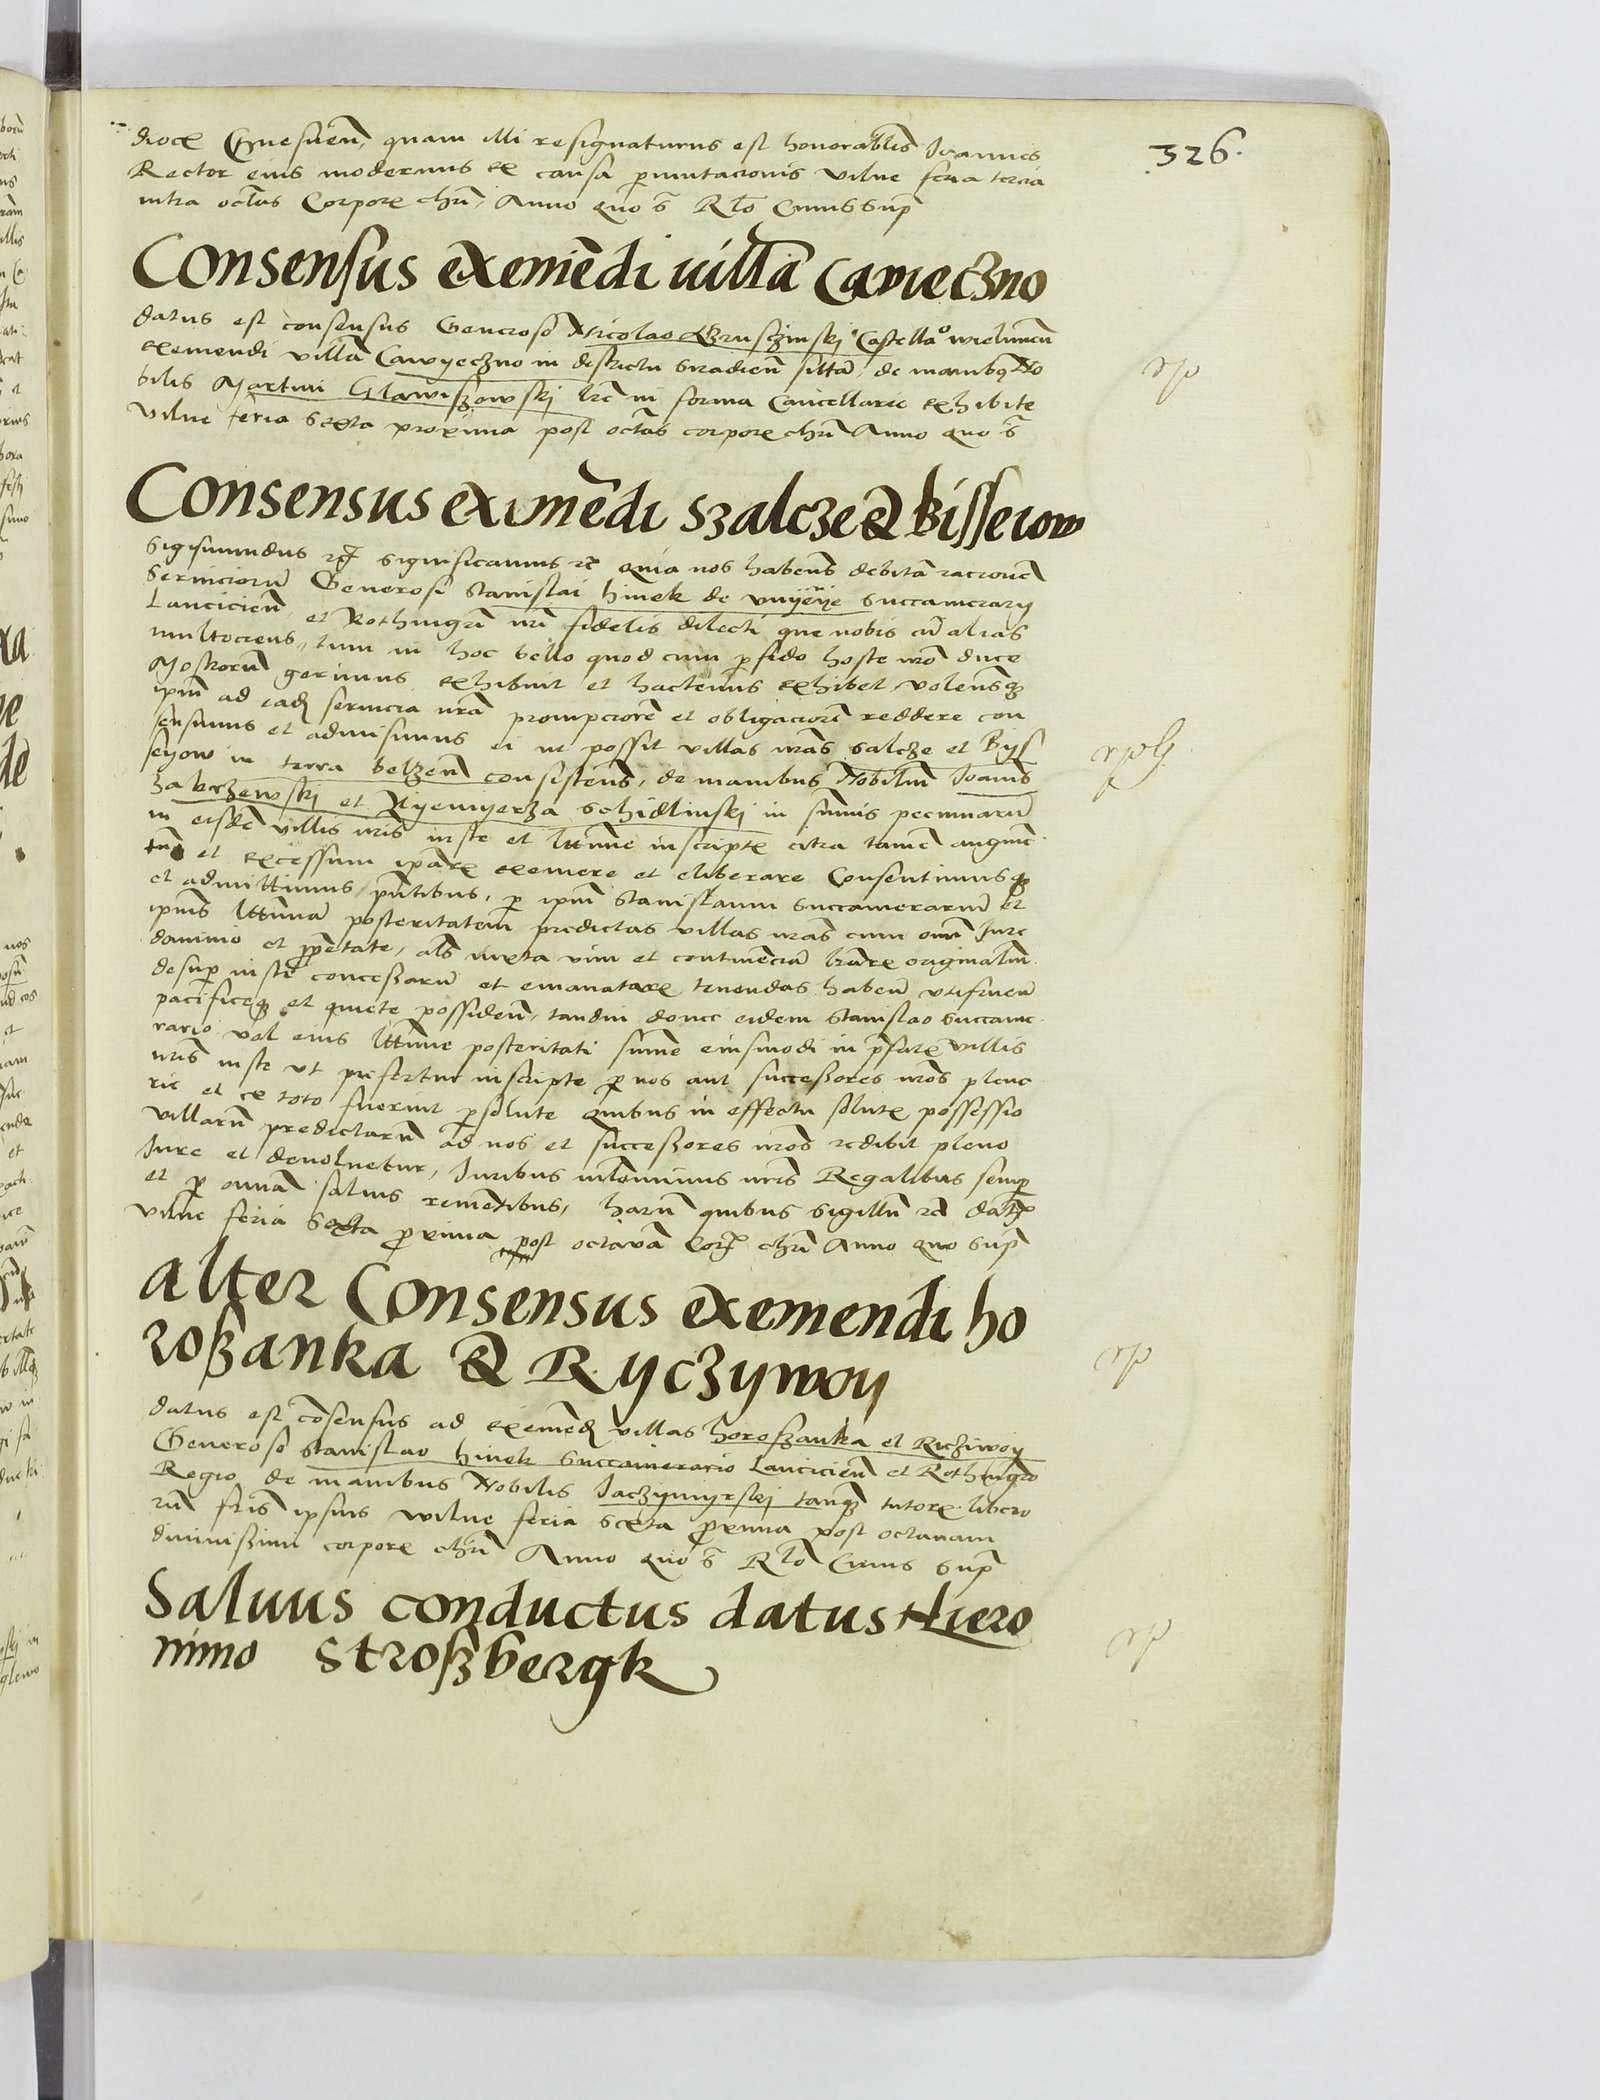 326.
dioce Gnesnen, quam illi resignaturus est honorabilis Joannes
Rector eius modernus ex causa permutacionis Vilne feria tercia
intra octas Corpore chri, Anno quo s Rto Cuius sup
Consensus exemedi uilla Cawieczno
datus est consensus Generoso Nicolao Castellano wielunen
exemendi villa Cawyeczno in districtu Siradien sitta, de manibus No
bilis Martini Glawiszowskj lre in forma Cancellarie exhibite
Vilne feria Sexta proxima post octas corpore chri Anno quo s
Consensus eximedi Szalcze & Bisseiow
Sigismundus rex significamus rc quia nos habens debita racione
Serviciorum Generosi Stanislai hinek de Succamerarij
Lancicien, et Rothmgri nri fidelis dilecti que nobis cu alias
multociens, tum in hoc bello quod cum perfido hoste nro duce
Moscorum gerimus exhibuit et hactenus exhibet, volensq
ipm ad eade servicia nra prompciore et obligaciore reddere con
sensimus et admisimus ei ut possit villas nras Salcze et Bys
seyow in terra belzen consistens, de manibus Nobilium Joanis
Zakrzewskj et Nyemyerza Schidlinskj in summis pecuniarum
in eisde villis nris iuste et lttime inscripte citra tame augme
tu et excessum ipare eximere et eliberare Consentimusq
et admittimus pntibus, per ipm Stanislaum Succamerarium et
ipius lttima posteritatem predictas villas nras cum omni Jure
dominio et pprietate, als iuxta vim et continecia lrare originalium
desup iuste concessarum et emanatare tenendas haben utifruen
pacificeq et quiete possiden, tandiu donec eidem Stanislao Succame
rario vel eius lttime posteritati summe eiusmodi in prefate villis
nris iuste ut prefertur inscripte per nos aut successores nros plene
rie et ex toto fuerint persolute Quibus in effectu solute possessio
villarum predictarum ad nos et successores nros redibit pleno
Jure et devoluetur, Juribus nris Regalibus semper
et per omnia salvis remanetibus, harum quibus Sigillum rc dat
Vilne feria Sexta proxima post octava Corp chri Anno quo sup
Alter Consensus exemendi ho
roszanka & Ryczywoy
datus est cosensus ad eximed villas horoszanka et Ricziwoy
Generoso Stanislao hinek Succamerario Lancicien et Rothmgro
Regio de manibus Nobilis Jaczymyrskj tanq tutore libero
rum fris ipsius wilne feria Sexta proxima post octavam
divinissimi corpore chri Anno quo s Rto Cuius sup
Saluus conductus datus Hiero
nimo Stroszbergk